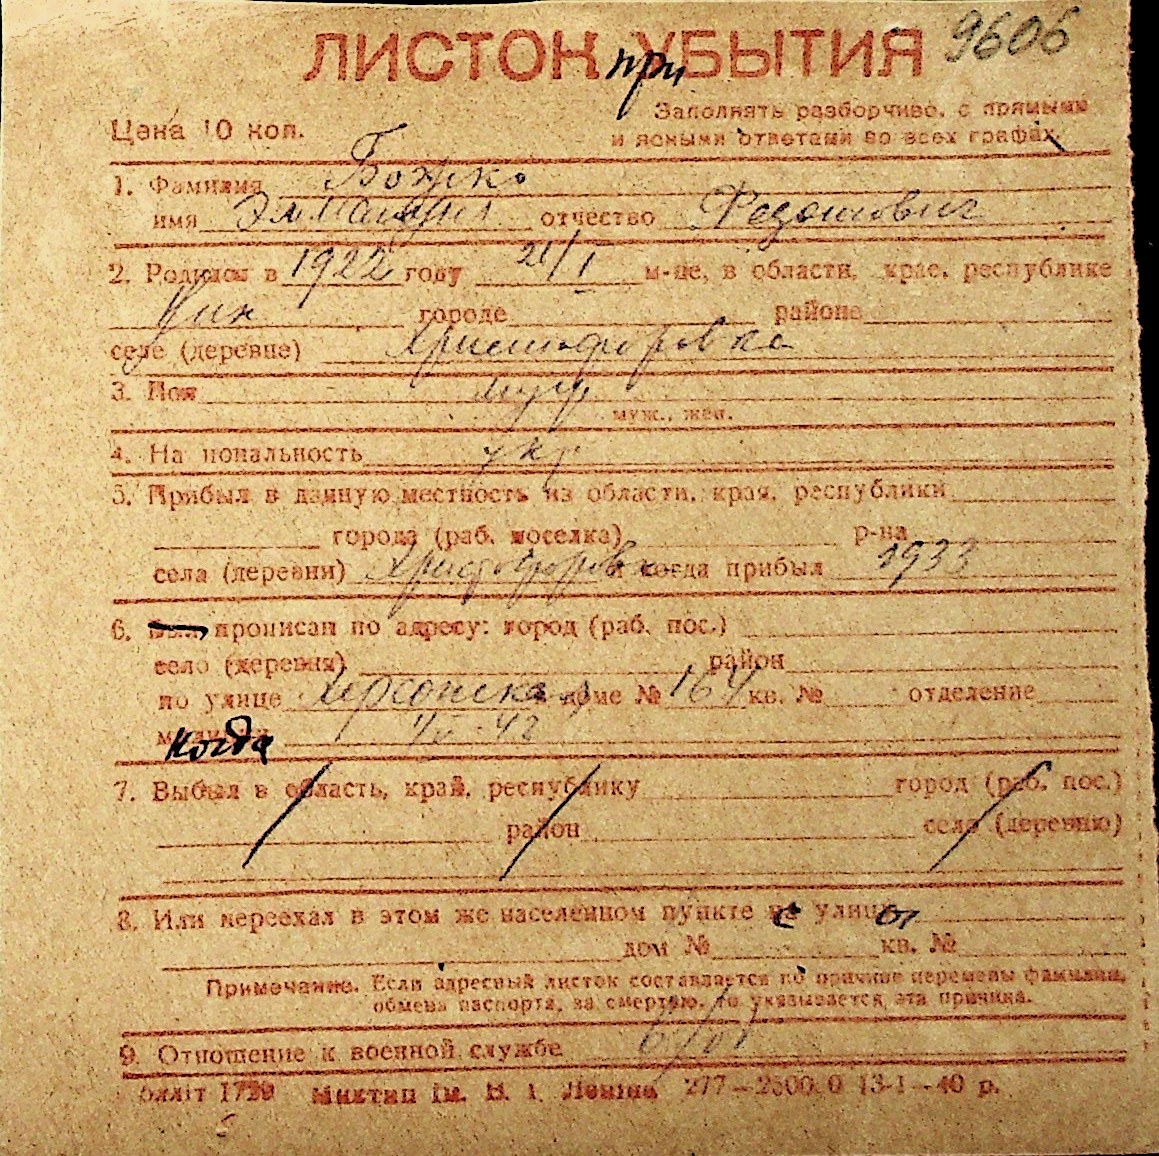 ЛИСТОК при УБЫТИЯ 9606
Заполнять разборчиво, с прямыми
Цена 10 коп. и ясными ответами во всех графах
1. Фамилия Божко
имя отчество Федотович
2. Родился в 1922 году 21/I м-це, в области, крае, республике
городе районе
селе (деревне) Христофоровка
3. Пол муж
муж., жен.
4. Национальность укр
5. Прибыл в данную местность из области, края, республики
города (раб. поселка) р-на
села (деревни) Христофоровка и когда прибыл 1933
6. Был прописан по адресу: город (раб. пос.)
село (деревня) район
по улице Херсонская доме № 164 кв. № отделение
когда
7. Выбыл в область, край, республику город (раб. пос.)
район село (деревню)
8. Или переехал в этом же населенном пункте с улицы
дом № кв. №
Примечание. Если адресный листок составляется по причине перемены фамилии,
обмена паспорта, за смертью, то указывается эта причина.
9. Отношение к военной службе
Миктип ім. В. І. Леніна 277—2500.0 13-І—40 р.